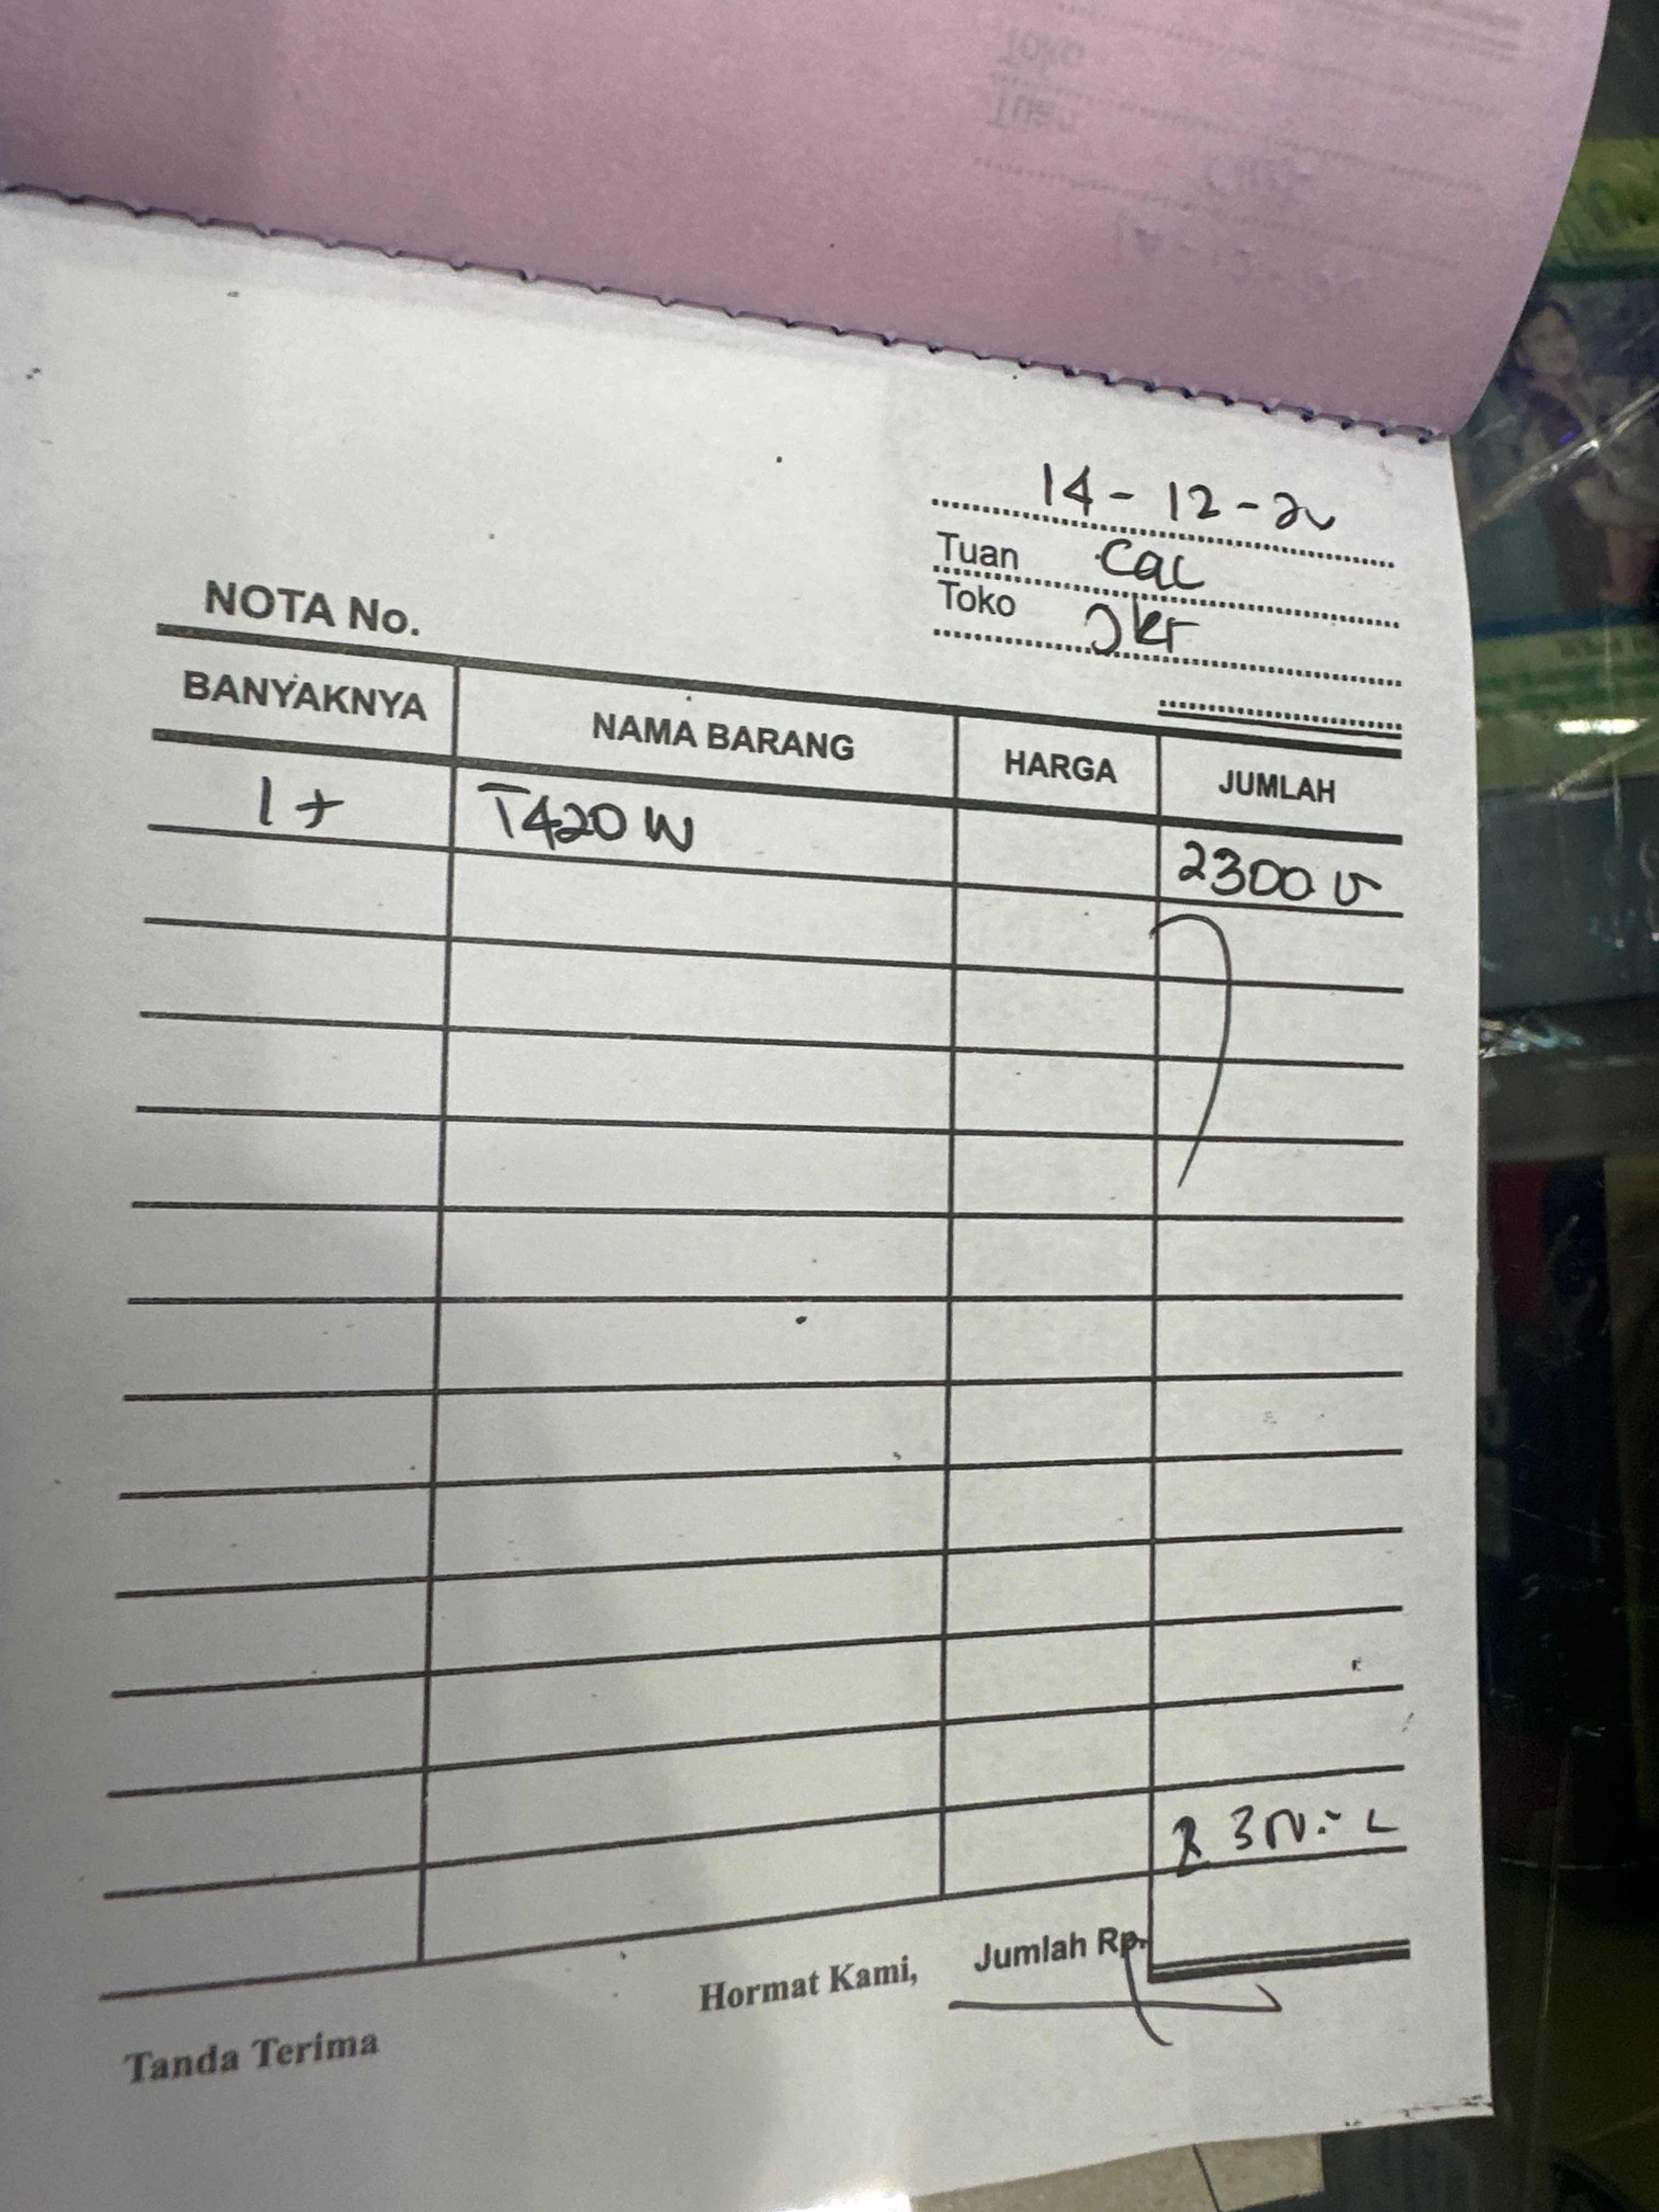 14-12-20
Tuan Cac
Toko Jkt
NOTA No.
BANYAKNYA NAMA BARANG HARGA JUMLAH
1+ T420W 2300
Jumlah Rp.
Hormat Kami,
Tanda Terima